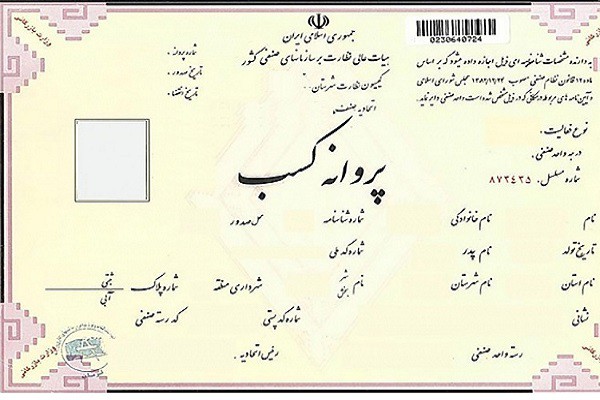 جمهوری اسلامی ایران
هیات عالی نظارت بر سازمانهای صنفی کشور
کمیسیون نظارت شهرستان :
اتحادیه صنف
شماره پروانه :
تاریخ صدور :
تاریخ انقضاء :
0230640724
به دارنده مشخصات شناسنامه ای ذیل اجازه داده میشود که بر اساس
ماده ۱۲ قانون نظام صنفی مصوب ۱۳۸۲/۱۲/۲۴ مجلس شورای اسلامی
و آیین نامه های مربوطه در مکانی که در ذیل مشخص شده است واحد صنفی دایر نماید.
نوع فعالیت :
درجه واحد صنفی :
شماره مسلسل : ۸۷۳۴۳۵
پروانه کسب
نام نام خانوادگی شماره شناسنامه محل صدور
تاریخ تولد نام پدر شماره کد ملی
نام استان نام شهرستان نام شهر بخش شهرداری منطقه شماره پلاک ثبتی آبی
نشانی شماره کد پستی کد رسته صنفی
رسته واحد صنفی رئیس اتحادیه :
وزارت بازرگانی